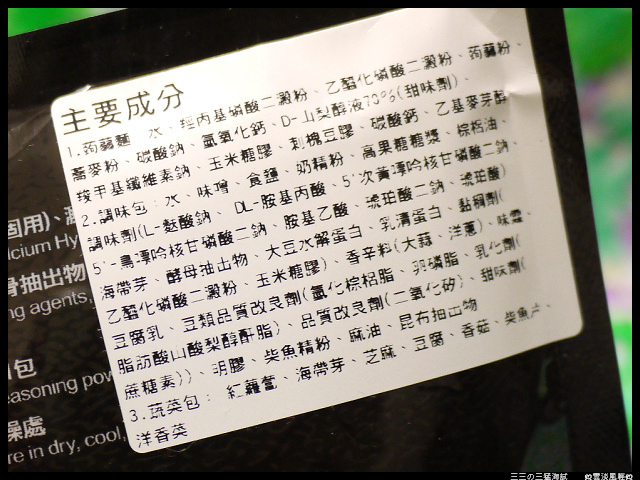 主要成分
1.蒟蒻麵:水、羥丙基磷酸二澱粉、乙醯化磷酸二澱粉、蒟蒻粉、
蕎麥粉、碳酸鈉、氫氧化鈣、D-山梨醇液70%(甜味劑)、
羧甲基纖維素鈉、玉米糖膠、刺槐豆膠、碳酸鈣、乙基麥芽醇
2.調味包:水、味噌、食鹽、奶精粉、高果糖糖漿、棕梠油、
調味劑(L-麩酸鈉、DL-胺基丙酸、5'次黃嘌呤核苷磷酸二鈉、
5'-鳥嘌呤核苷磷酸二鈉、胺基乙酸、琥珀酸二鈉、琥珀酸)
海帶芽、酵母抽出物、大豆水解蛋白、乳清蛋白、黏稠劑(
乙醯化磷酸二澱粉、玉米糖膠)、香辛料(大蒜、洋蔥)、味霖、
豆腐乳、豆類品質改良劑(氫化棕梠脂、卵磷脂、乳化劑(
脂肪酸山酸梨醇酐脂)、品質改良劑(二氧化矽)、甜味劑(
蔗糖素))、明膠、柴魚精粉、麻油、昆布抽出物
3.蔬菜包:紅蘿蔔、海帶芽、芝麻、豆腐、香菇、柴魚片、
洋香菜
固用)、
lcium Hy
抽出物
ng agents,
包
easoning pow
燥處
re in dry, cool,
三三の三猛海賊
雲淡風輕